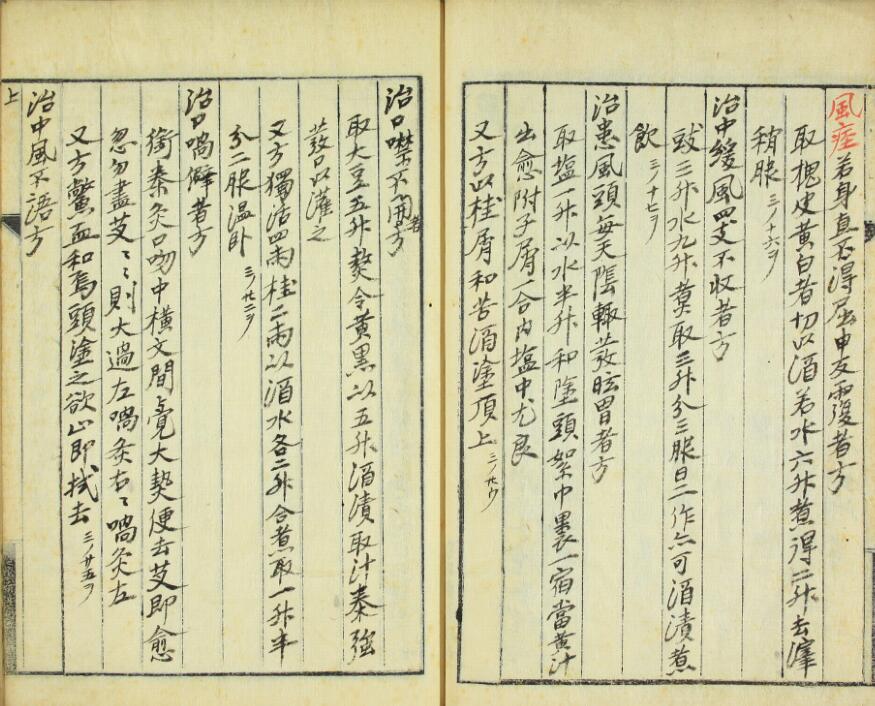 風痙若身直不得屈申反覆者方
取槐皮黄白者切以酒若水六升煮得二升去滓
稍服 三ノ十六ヲ
治中緩風四支不收者方
豉三升水九升煮取三升分三服日二作亦可酒漬煮
飲 三ノ十七ヲ
治患風頭每天陰輙發眩冒者方
取塩一升以水半升和塗頭絮巾裹一宿當黄汁
出愈附子屑一合内塩中尤良
又方以桂屑和苦酒塗頂上 三ノ廿ウ
治口噤不開者方
取大豆五升熬令黄黒以五升酒漬取汁桊強
發口以灌之
又方獨活四兩桂二兩以酒水各二升合煮取一升半
分二服温卧 三ノ廿二ヲ
治口喎僻者方
銜奏灸口吻中横文間覺大熱便去艾即愈
忽勿盡艾〻則大過左喎灸右〻喎灸左
又方鱉血和烏頭塗之欲止即拭去 三ノ廿五ヲ
治中風不語方
上